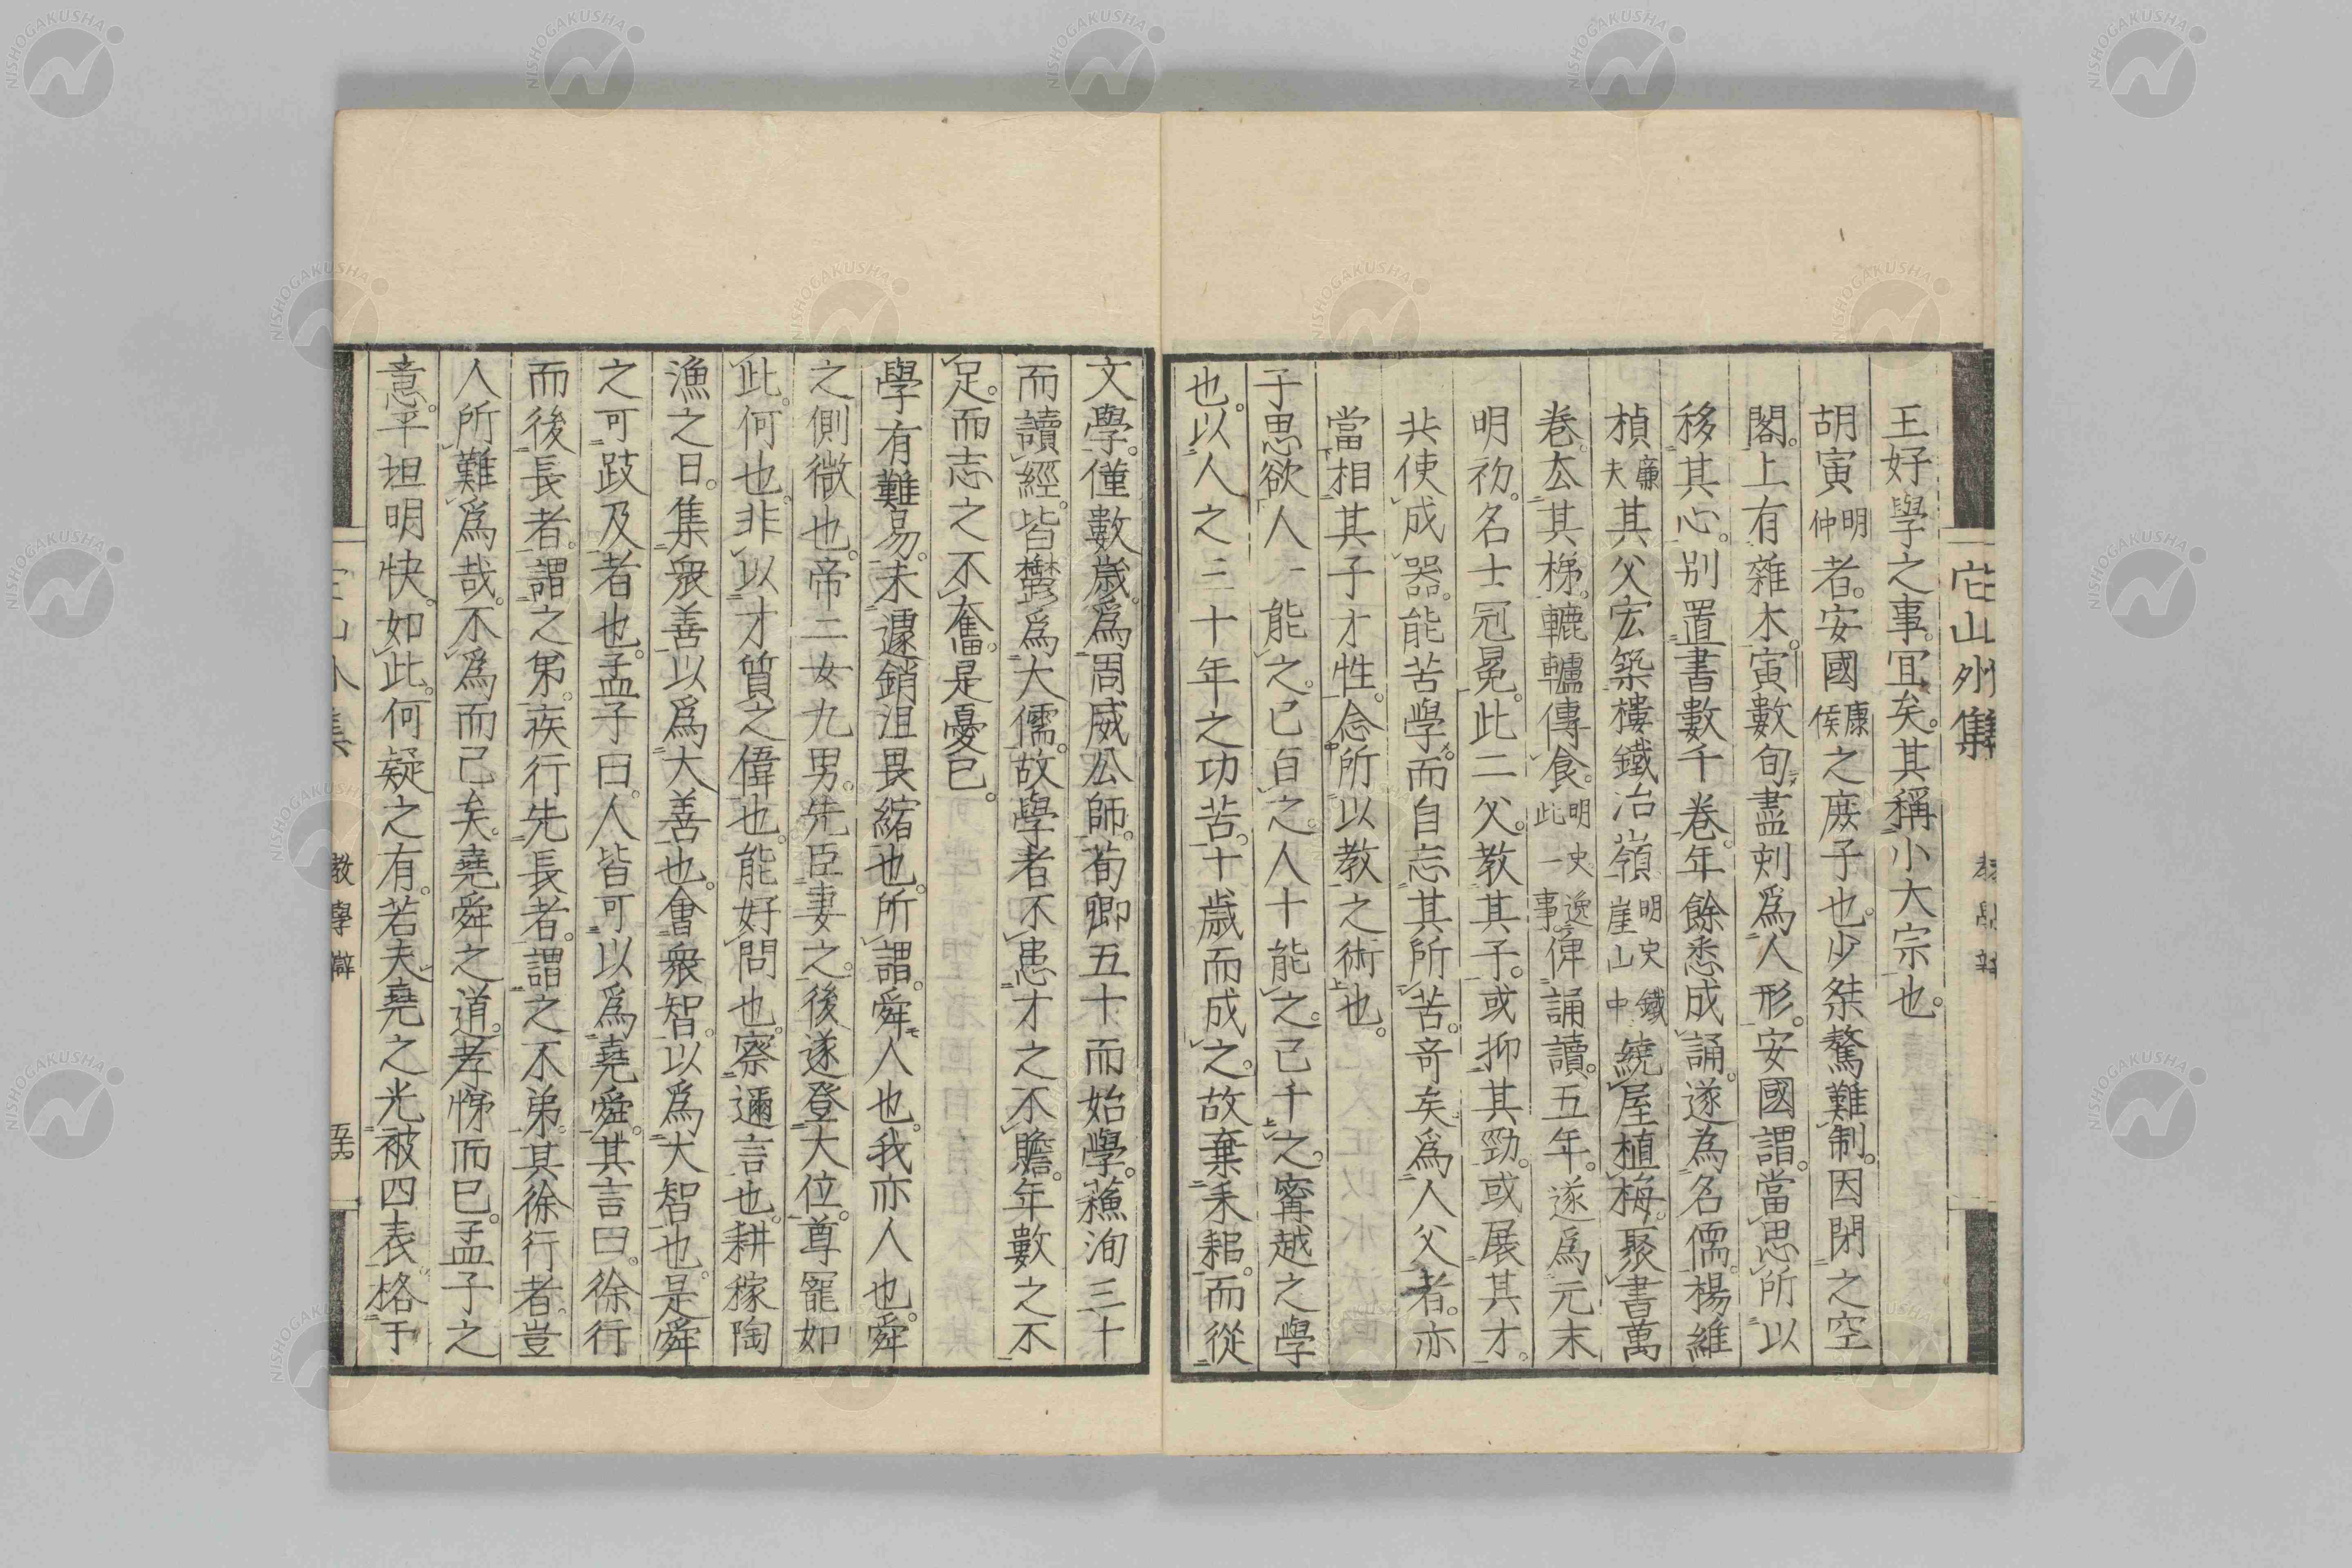 它山外集
王好學之事。宜矣。其稱小大宗也。
胡寅明仲者。安國康侯之庶子也。少桀驁難制。因閉之空
閣。上有雜木。寅數旬盡刻爲人形。安國謂。當思所以
移其心。別置書數千卷。年餘悉成誦。遂為名儒。楊維
楨廉夫其父宏築樓鐵冶嶺明史鐵崖山中繞屋植梅。聚書萬
卷。去其梯。轆轤傳食。明史逸此一事。俾誦讀。五年。遂爲元末
明初。名士冠冕。此二父。教其子。或抑其勁。或展其才。
共使成器。能苦學。而自忘其所苦。奇矣。爲人父者。亦
當相其子才性。念所以教之術也。
子思欲人一能之。己百之。人十能之。己千之。甯越之學
也。以人之三十年之功苦。十歲而成之。故棄耒耜。而從
文學。僅數歲。爲周威公師。荀卿五十而始學。蘓洵三十
而讀經。皆欝爲大儒。故學者不患才之不贍。年數之不
足。而志之不奮。是憂已。
學有難易。未遽銷沮畏縮也。所謂。舜人也。我亦人也。舜
之側微也。帝二女九男。先臣妻之。後遂登大位。尊寵如
此。何也。非以才質之偉也。能好問也。察邇言也。耕稼陶
漁之日。集衆善以爲大善也。會衆智。以爲大智也。是舜
之可跂及者也。孟子曰。人皆可以爲堯舜。其言曰。徐行
而後長者。謂之弟。疾行先長者。謂之不弟。其徐行者。豈
人所難爲哉。不爲而已矣。堯舜之道。孝悌而已。孟子之
意。平坦明快。如此。何疑之有。若夫堯之光被四表。格于
教學辯